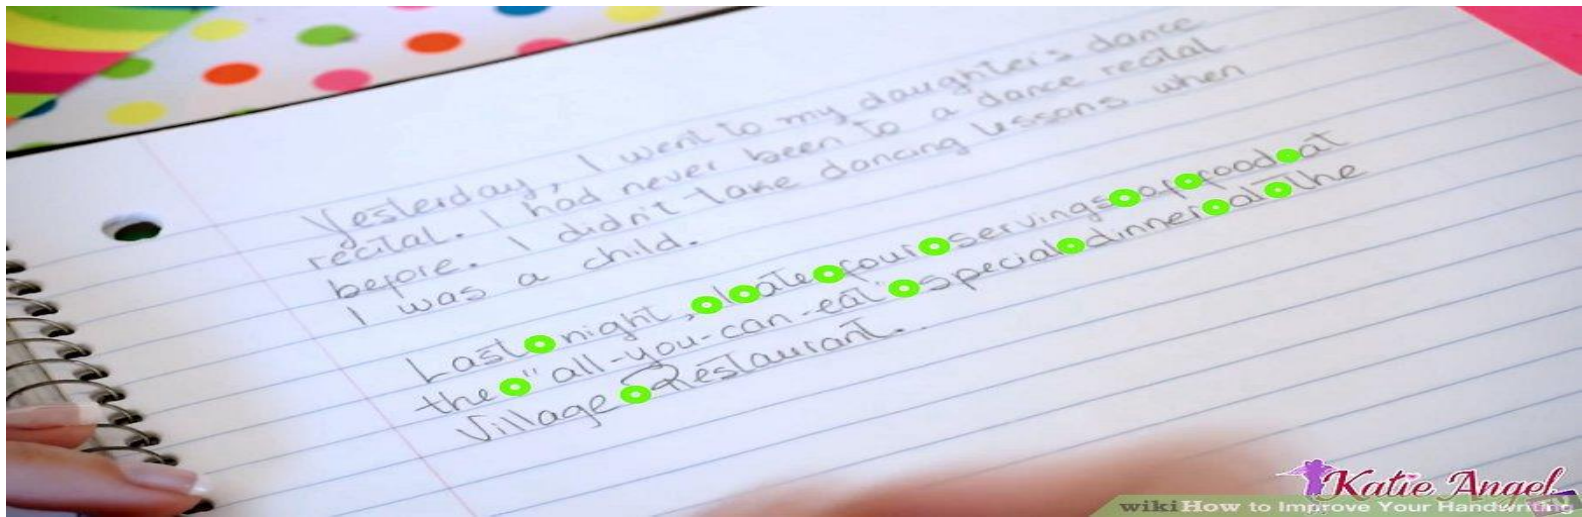 Yesterday, I went to my daughter's dance
recital. I had never been to a dance recital
before. I didn't take dancing lessons when
I was a child.
Last night, I ate four servings of food at
the "all-you-can-eat" special dinner at the
Village Restaurant...
Katie Angel
wikiHow to Improve Your Handwriting